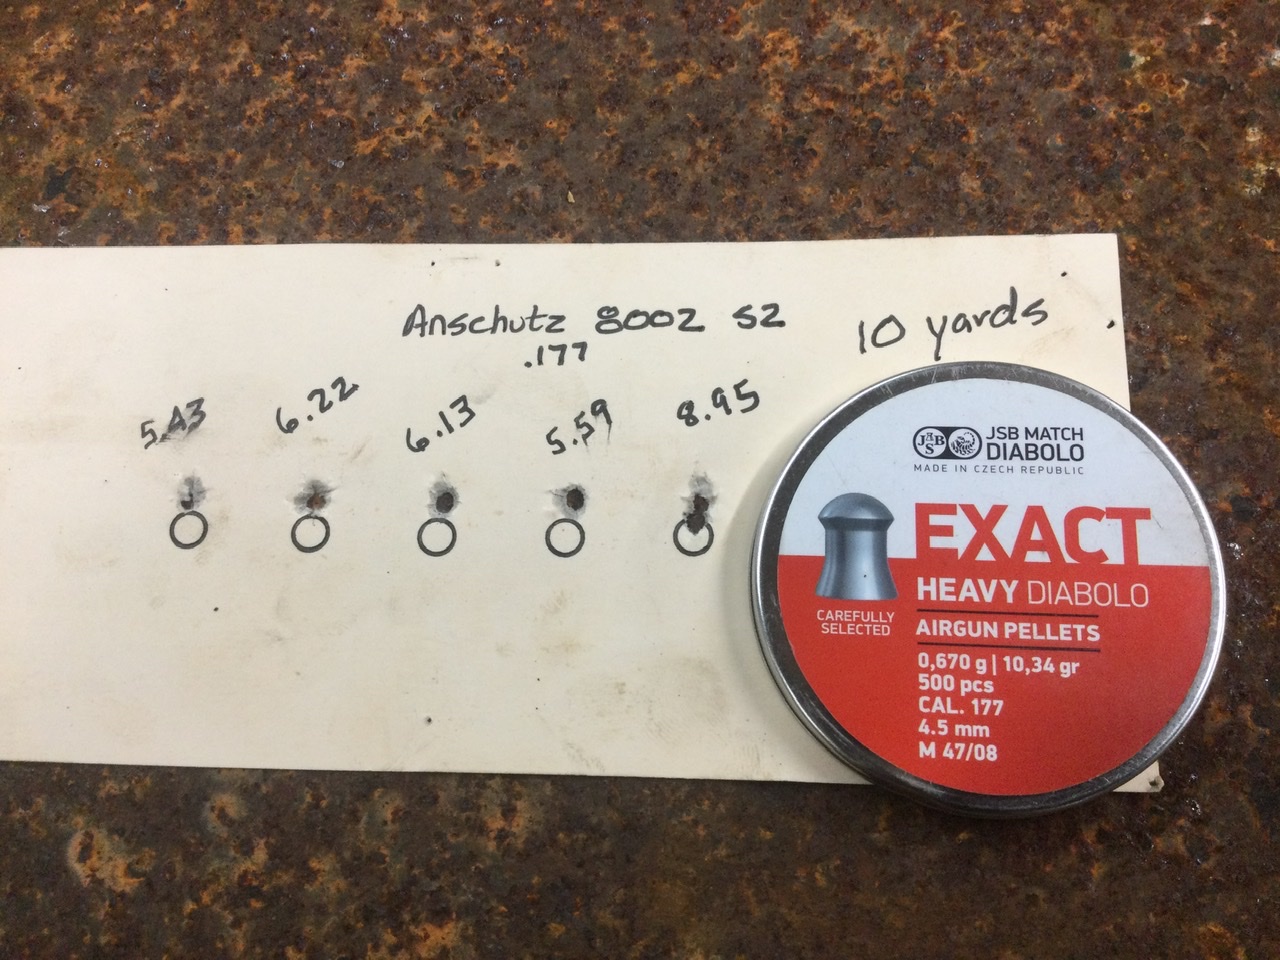 Anschutz 8002 S2
.177
10 yards
5.43
6.22
6.13
5.59
8.95
JSB
JSB MATCH
DIABOLO
MADE IN CZECH REPUBLIC
EXACT
HEAVY DIABOLO
CAREFULLY
SELECTED
AIRGUN PELLETS
0,670 g | 10,34 gr
500 pcs
CAL. 177
4.5 mm
M 47/08